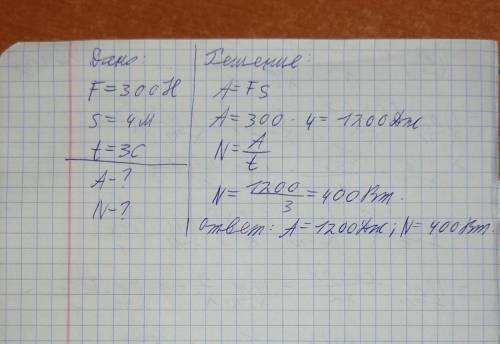 Дано:
F=300Н
S=4м
t=3с
A-?
N-?
Решение:
A=FS
A=300·4=1200Дж
N=A/t
N=1200/3=400Вт.
Ответ: A=1200Дж; N=400Вт.